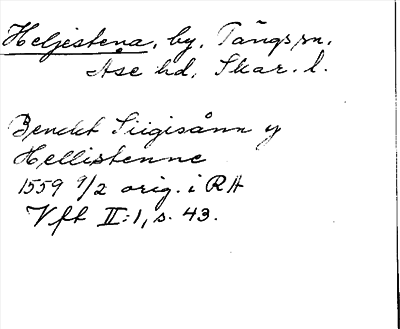 Heljestena, by, Tängs sn,
Åse hd, Skar. l.
Bendct Siigisånn y
Hellistenne
1559 9/2 orig. i RA
Vft II:1, s. 43.